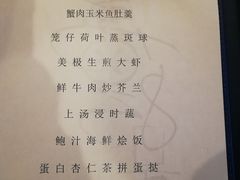 蟹肉玉米鱼肚羹
笼仔荷叶蒸斑球
美极生煎大虾
鲜牛肉炒芥兰
上汤浸时蔬
鲍汁海鲜烩饭
蛋白杏仁茶拼蛋挞